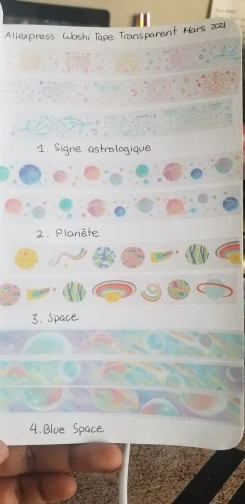 Aliexpress Washi Tape Transparent Mars 2021
1. Signe astrologique
2. Planête
3. Space
4. Blue Space